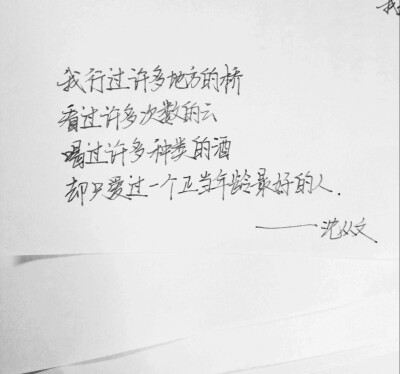 我行过许多地方的桥
看过许多次数的云
喝过许多种类的酒
却只爱过一个正当年龄最好的人.
——沈从文